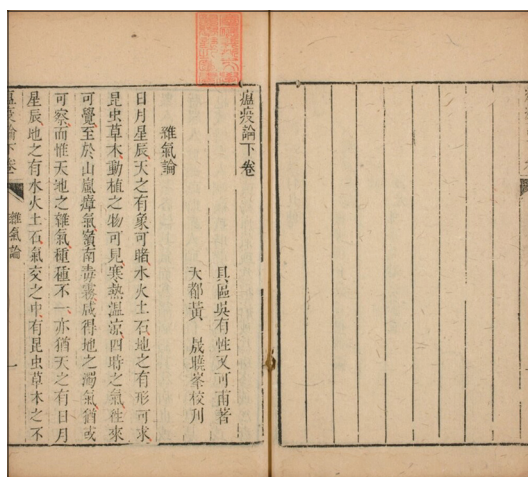 瘟疫論下卷
具區吳有性又可甫著
大都黃　晟曉峯校刊
雜氣論
日月星辰天之有象可睹水火土石地之有形可求
昆虫草木動植之物可見寒熱溫涼四時之氣往來
可覺至於山嵐瘴氣嶺南毒霧咸得地之濁氣猶或
可察而惟天地之雜氣種種不一亦猶天之有日月
星辰地之有水火土石氣交之中有昆虫草木之不
瘟疫論下卷
雜氣論
一